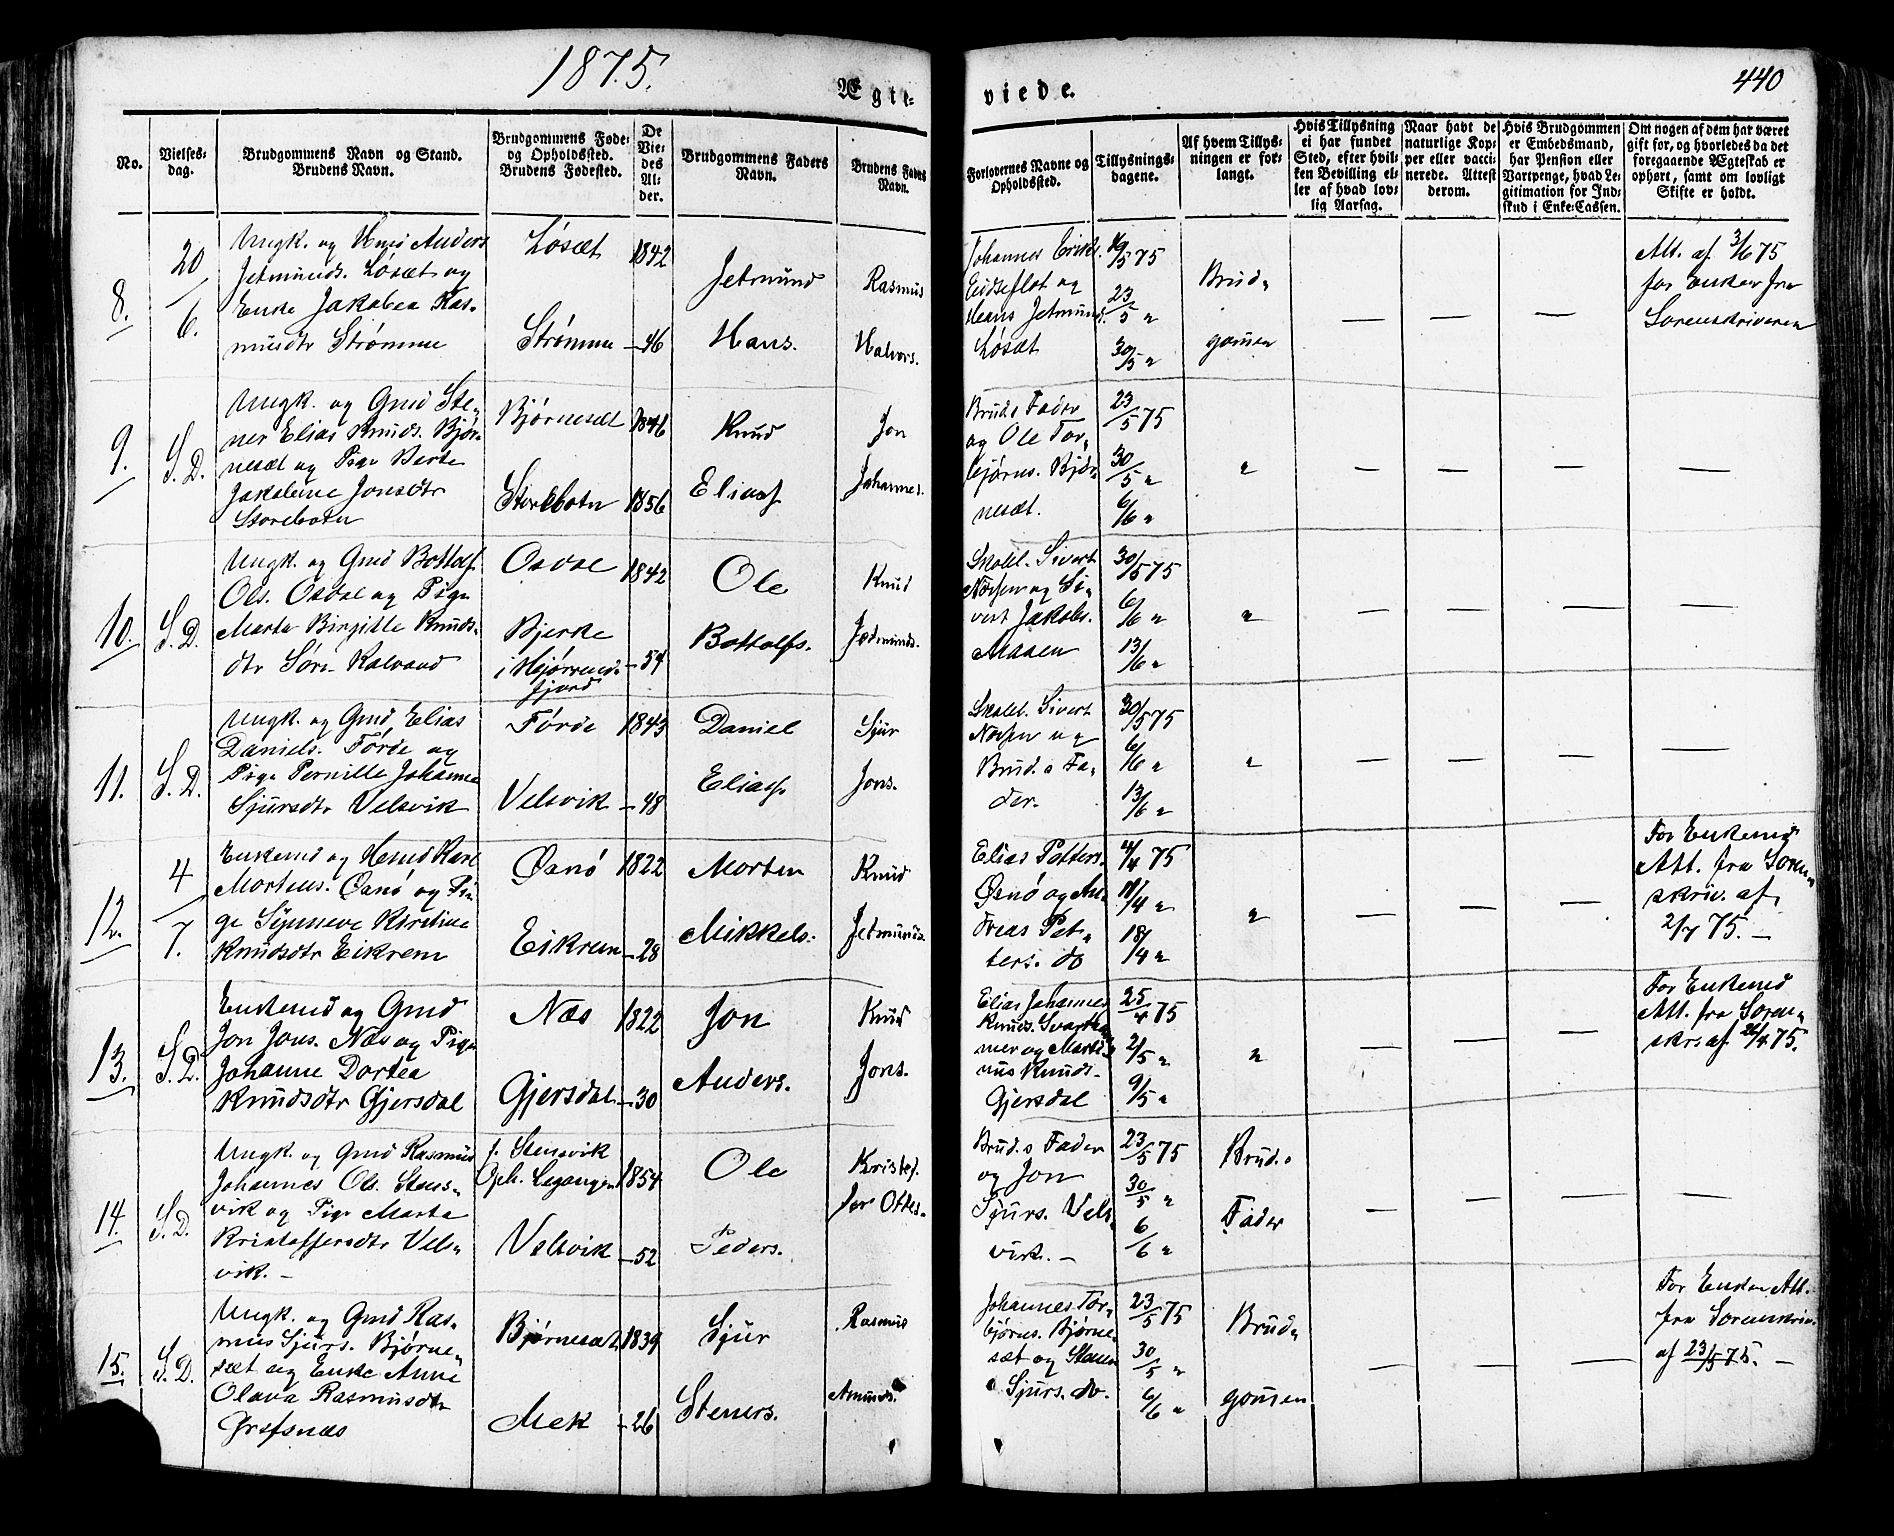 1875.
440
Ægte-
viede.
No.
Vielses-
dag.
Brudgommens Navn og Stand.
Brudens Navn.
Brudgommens Føde-
og Opholdssted.
Brudens Fødested.
De
Vie-
des
Al-
der.
Brudgommens Faders
Navn.
Brudens Faders
Navn.
Forlovernes Navne og
Opholdssted.
Tillysnings-
dagene.
Af hvem Tillys-
ningen er for-
langt.
Hvis Tillysning
ei har fundet
Sted, efter hvil-
ken Bevilling el-
ler af hvad lov-
lig Aarsag.
Naar havt de
naturlige Kop-
per eller vacci-
nerede. Attest
derom.
Hvis Brudgommen
er Embedsmand,
har Pension eller
Vartpenge, hvad Le-
gitimation for Ind-
skud i Enke-Cassen.
Om nogen af dem har været
gift før, og hvorledes da det
foregaaende Ægteskab er
ophørt, samt om lovligt
Skifte er holdt.
8.
20/6.
Ungk. og Hmd Anders
Jetmunds. Løsæt og
Enke Jakobea Ras-
musdtr Strømme
Løsæt
Strømme
1842
-46
Jetmund
Hans.
Rasmus
Halvors.
Johannes Eriks.
Eidseflot og
Hans Jetmunds.
Løsæt
16/5 75
23/5 "
30/5 "
Brud-
gomen
— — —
Att. af 3/6 75
for Enken fra
Sorenskriveren
9.
S. D.
Ungk. og Gmd Ste-
ner Elias Knuds. Bjør-
nesæt og Pige Berte
Jakobine Jonsdtr
Storebotn
Bjørnesæt
Storebotn
1846
1856
Knud
Eliass.
Jon
Johannes.
Bruds Fader
og Ole Tor-
bjørns. Bjør-
nesæt.
23/5 75
30/5 "
6/6 "
"
— — — —
10.
S. D.
Ungk. og Gmd Bottolf
Ols. Osdal og Pige
Marte Birgitte Knuds-
dtr Søre Kalvand
Osdal
Bjerke
i Hjørrend-
fjord
1842
-54
Ole
Bottolfs.
Knud
Jedmunds.
Skolel. Sivert
Næssen og Si-
vert Jakobs.
Maaen
30/5 75
6/6 "
13/6 "
"
— — — —
11.
S. D.
Ungk. og Gmd Elias
Daniels. Førde og
Pige Pernille Johanne
Sjursdtr Velsvik
Førde
Velsvik
1843
-48
Daniel
Eliass.
Sjur
Jons.
Skolel. Sivert
Næssen og
Bruds Fa-
der.
30/5 75
6/6 "
13/6 "
"
— — — —
12.
4/7.
Enkemd og Hmd Karl
Mortens. Øsnø og Pi-
ge Synneve Kirstine
Knudsdtr Eikrem
Øsnø
Eikrem
1822
-28
Morten
Mikkels.
Knud
Jetmunds.
Elias Petters.
Øsnø og An-
dreas Pet-
ters. do
4/4 75
11/4 "
18/4 "
"
— — —
For Enkemd
Att. fra Soren-
skriv. af
2/7 75. —
13.
S. D.
Enkemd og Gmd
Jon Jons. Næs og Pige
Johanne Dortea
Knudsdtr Gjersdal
Næs
Gjersdal
1822
-30
Jon
Anders.
Knud
Jons.
Elias Johannes
Knuds. Svarte-
mer og Marti-
nus Knuds-
Gjersdal
25/4 75
2/5 "
9/5 "
"
— — —
For Enkemd
Att. fra Soren-
skr. af 26/4 75.
14.
S. D.
Ungk. og Gmd Rasmus
Johannes Ols. Stens-
vik og Pige Marta
Kristoffersdtr Vels-
vik. —
f. Stensvik
Oph. Legangen
Velsvik
1854
-52
Ole
Peders.
Kristof-
for Ottes.
Bruds Fader
og Jon
Sjurs. Vels-
vik. —
23/5 75
30/5 "
6/6 "
Bruds
Fader
— — — —
15.
S. D.
Ungk. og Gmd Ras-
mus Sjurs. Bjørne-
sæt og Enke Anne
Olava Rasmusdtr
Ørsfsnæs
Bjørnesæt
Mek
1839
-26
Sjur
Steners.
Rasmus
Amunds.
Johannes Tor-
bjørns. Bjørne-
sæt og Stener
Sjurs. do.
23/5 75
30/5 "
6/6 "
Brud-
gomen
— — —
For Enken Att.
fra Sorenskriv.
af 23/5 75. —